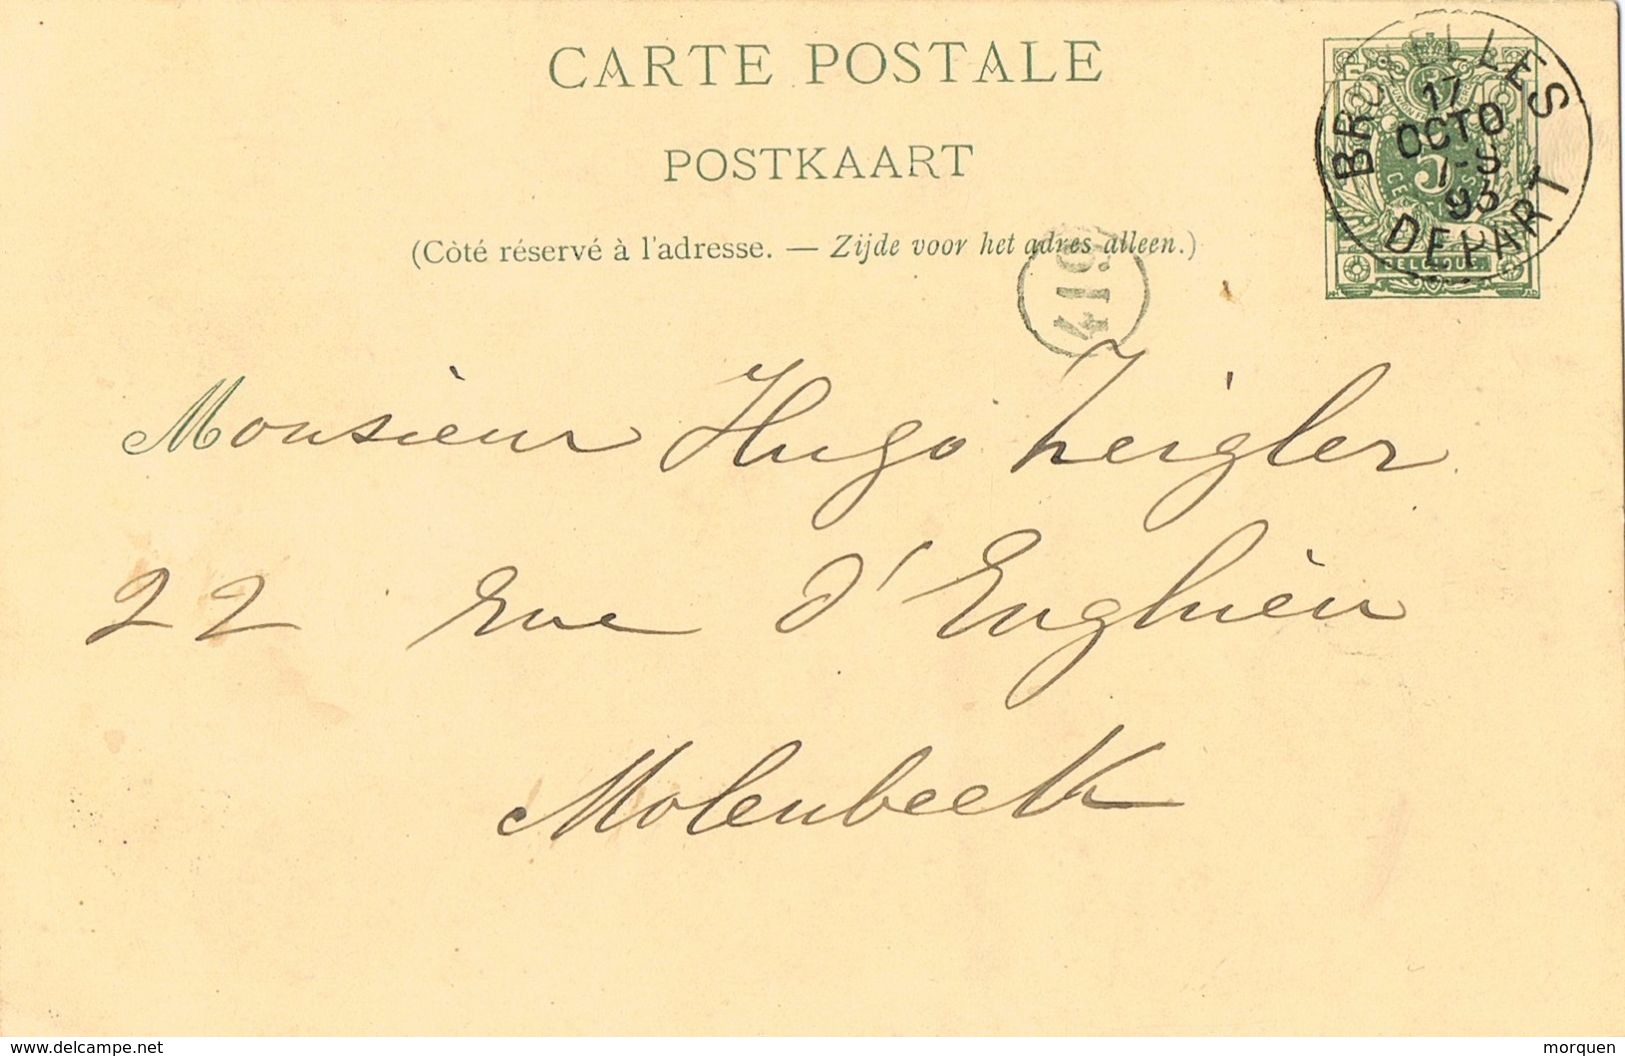 CARTE POSTALE
POSTKAART
(Côté réservé à l'adresse. — Zijde voor het adres alleen.)
BRUXELLES
17
OCTO
95
DEPART
5
BELGIQUE
419
Monsieur Hugo Zeigler
22 rue d'Enghien
Molenbeek
www.delcampe.net
morquen